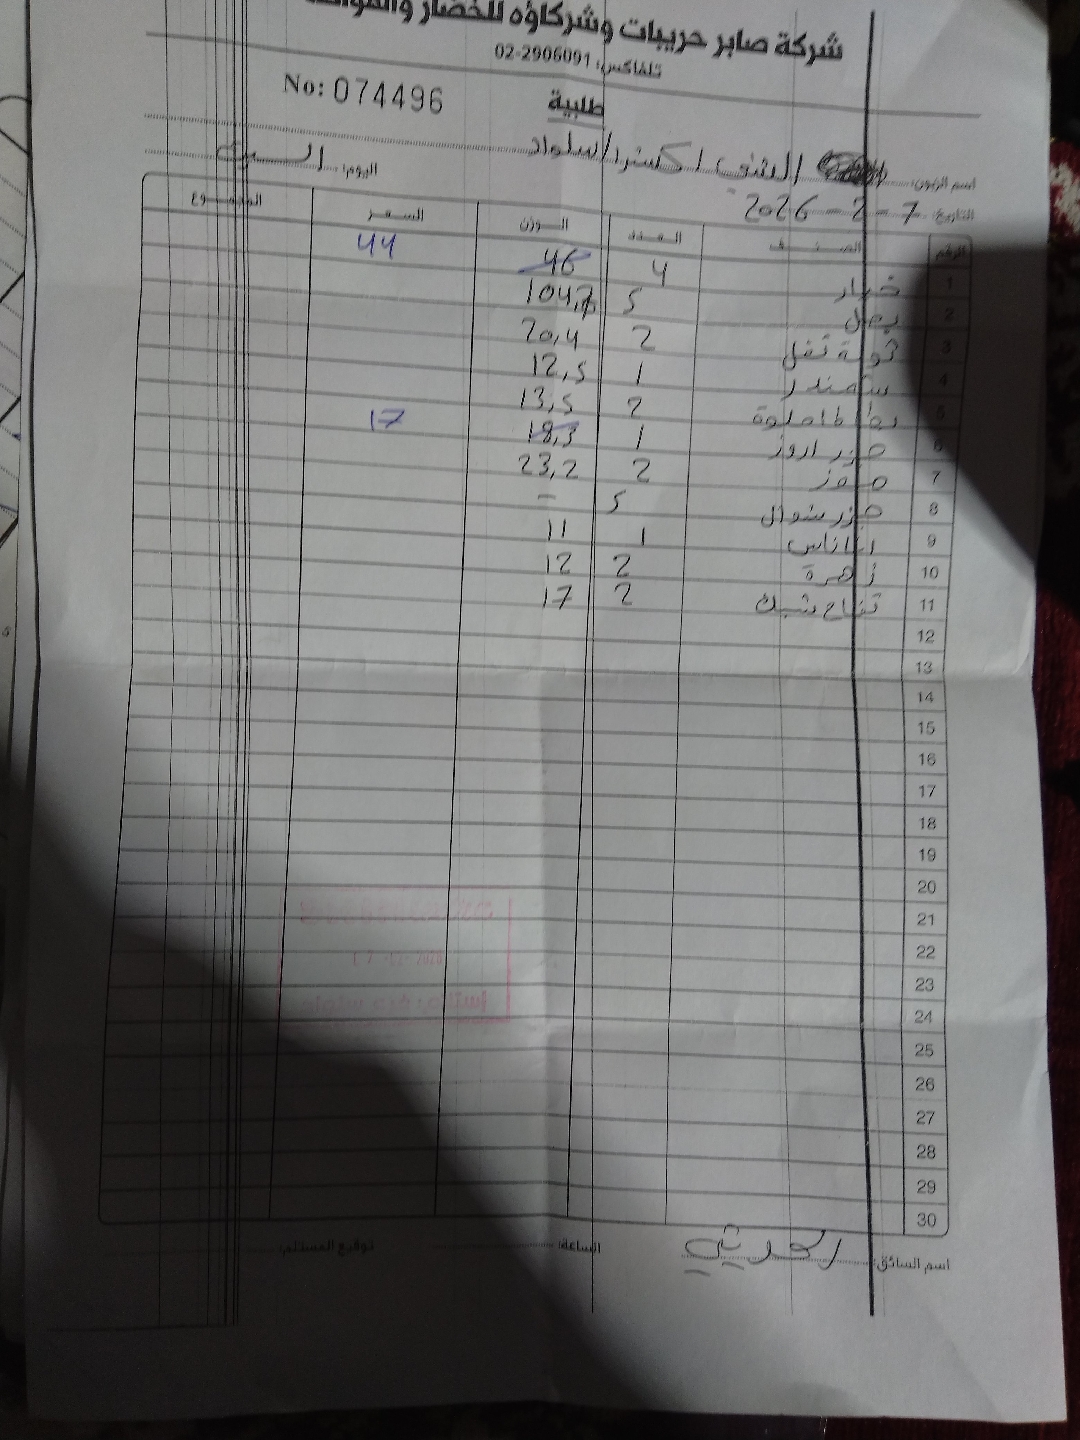 شركة صابر حريبات وشركاؤه للخضار والفواكه
تلفاكس: 02-2906091
No: 074496
طلبية
اسم الزبون: الشني اكسترا سلواد
اليوم: السبت
التاريخ: 7-2-2026
الرقم الصنف العدد الوزن السعر المجموع
1 خيار 4 46 44
2 بصل 5 104,7
3 تفل 2 20,4
4 شمندر 1 12,5
5 2 13,5
6 جزر اروز 1 18,3 17
7 موز 2 23,2
8 جزر شوال 5 -
9 اناناس 1 11
10 زهرة 2 12
11 تفاح شبك 2 17
12
13
14
15
16
17
18
19
20
21
22
23
24
25
26
27
28
29
30
اسم السائق: الساعة: توقيع المستلم: